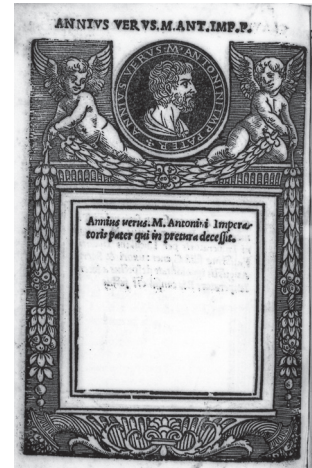 ANNIVS VERVS.M.ANT.IMP.P.
ANNIVS VERVS M ANTONINI IMP PATER
Annius uerus. M. Antonini Impera-
toris pater qui in pretura decessit.